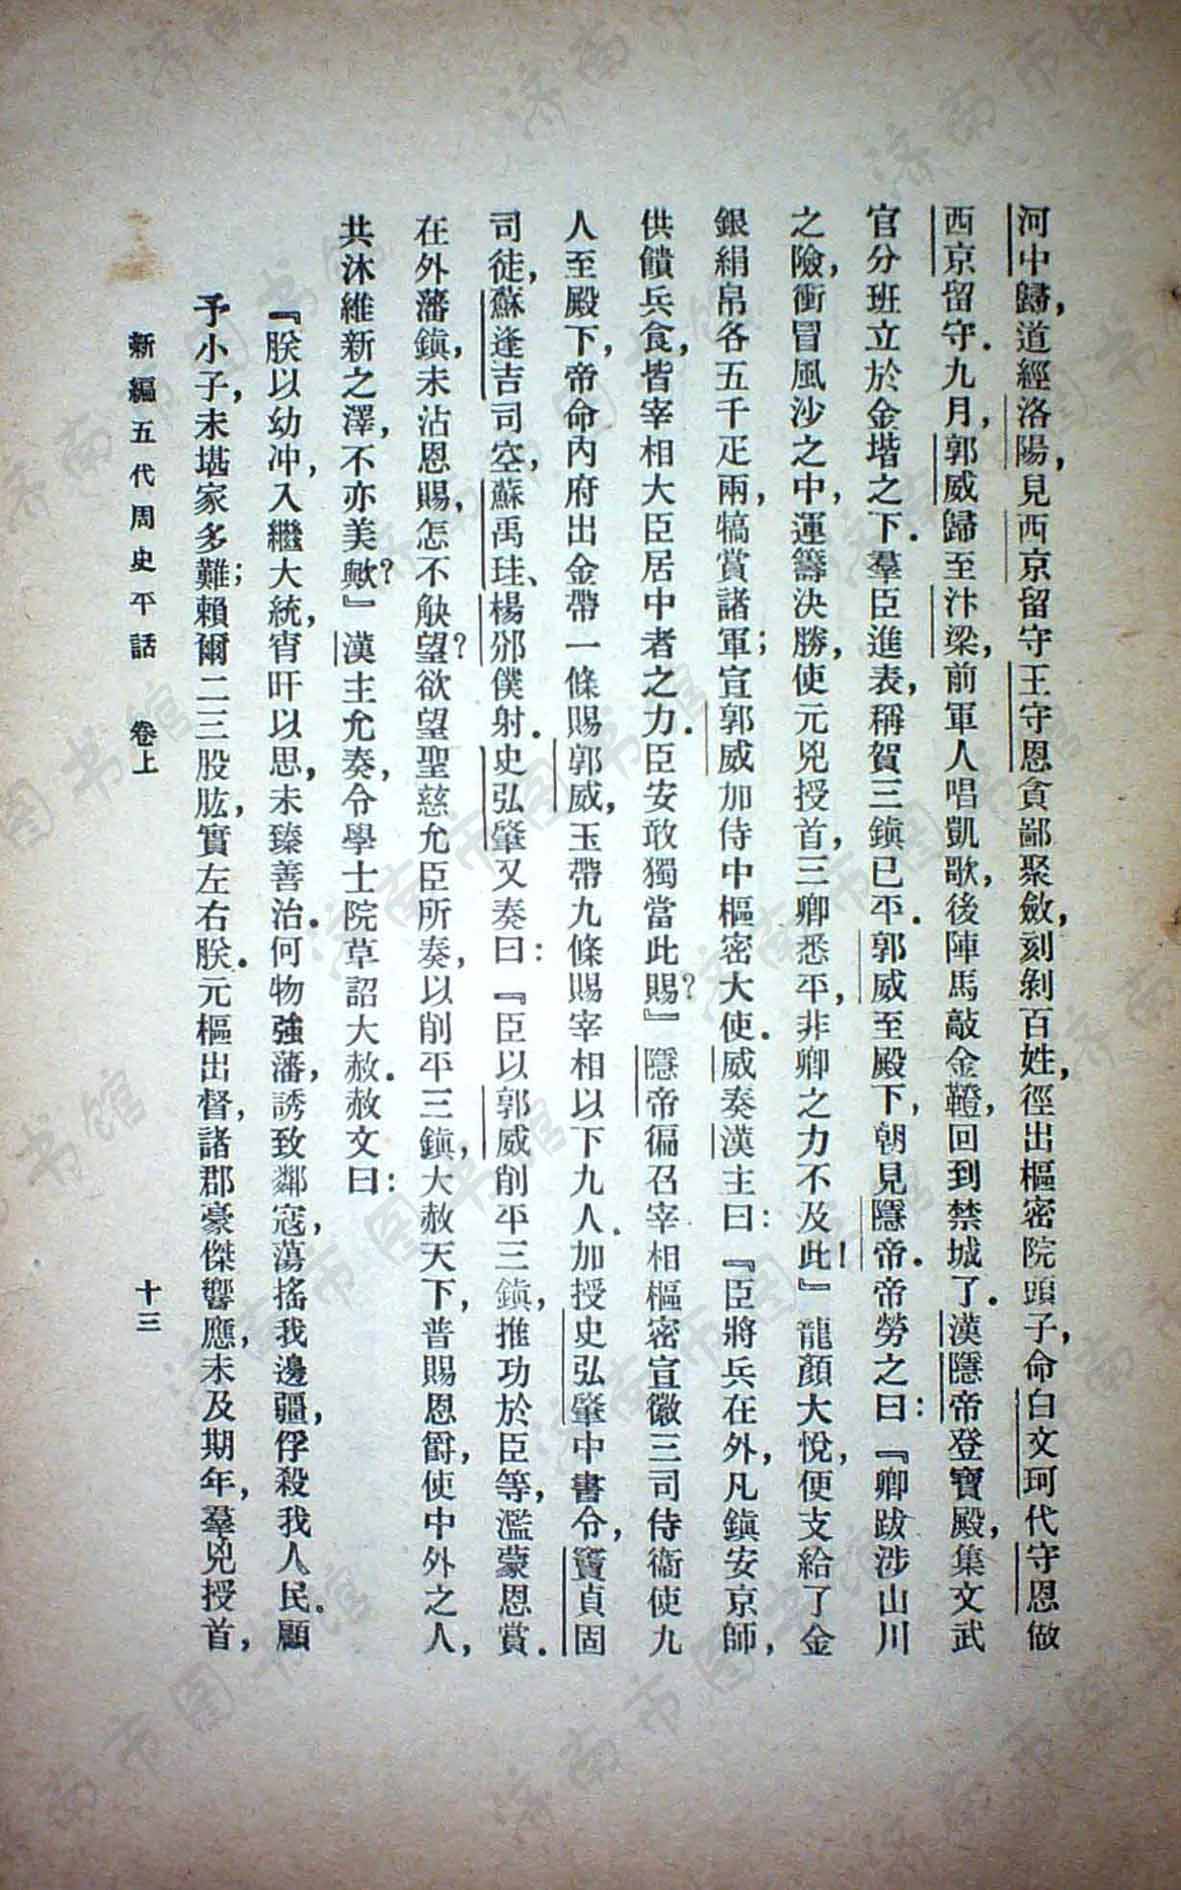 河中歸，道經洛陽，見西京留守王守恩貪鄙聚斂，刻剝百姓，徑出樞密院頭子，命白文珂代守恩做
西京留守．九月，郭威歸至汴梁，前軍人唱凱歌，後陣馬敲金鞚，回到禁城了．漢隱帝登寶殿，集文武
官分班立於金堦之下．羣臣進表，稱賀三鎮已平．郭威至殿下，朝見隱帝．帝勞之曰：『卿跋涉山川
之險，衝冒風沙之中，運籌決勝，使元兇授首，三卿悉平，非卿之力不及此！』龍顏大悅，便支給了金
銀絹帛各五千疋兩，犒賞諸軍；宣郭威加侍中樞密大使．威奏漢主曰：『臣將兵在外，凡鎮安京師，
供饋兵食，皆宰相大臣居中者之力．臣安敢獨當此賜？』隱帝徧召宰相樞密宣徽三司侍衞使九
人至殿下，帝命內府出金帶一條賜郭威，玉帶九條賜宰相以下九人．加授史弘肇中書令，竇貞固
司徒，蘇逢吉司空，蘇禹珪、楊邠僕射．史弘肇又奏曰：『臣以郭威削平三鎮，推功於臣等，濫蒙恩賞．
在外藩鎮，未沾恩賜，怎不觖望？欲望聖慈允臣所奏，以削平三鎮，大赦天下，普賜恩爵，使中外之人，
共沐維新之澤，不亦美歟？』漢主允奏，令學士院草詔大赦．赦文曰：
『朕以幼冲，入繼大統，宵旰以思，未臻善治．何物強藩，誘致鄰寇，蕩搖我邊疆，俘殺我人民。顧
予小子，未堪家多難；賴爾二三股肱，實左右朕．元樞出督，諸郡豪傑響應，未及期年，羣兇授首，
新編五代周史平話　卷上　十三